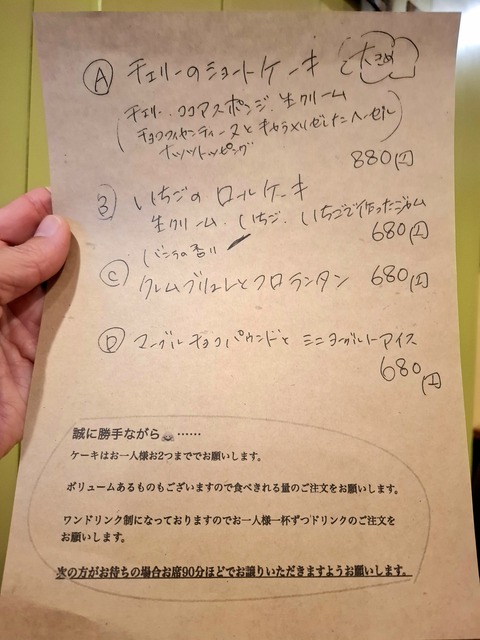 Ⓐ チェリーのショートケーキ 大きめ
(チェリー、ココアスポンジ、生クリーム
チョコフィヤンティーヌとキャラメリゼしたヘーゼル
ナッツトッピング)
880円
Ⓑ いちごのロールケーキ
生クリーム、いちご、いちごで作ったジャム
680円
バニラの香り
Ⓒ クレムブリュレとフロランタン 680円
Ⓓ マーブルチョコパウンドとミニヨーグルトアイス
680円
誠に勝手ながら……
ケーキはお一人様お2つまででお願いします。
ボリュームあるものもございますので食べきれる量のご注文をお願いします。
ワンドリンク制になっておりますのでお一人様一杯ずつドリンクのご注文を
お願いします。
次の方がお待ちの場合お席90分ほどでお譲りいただきますようお願いします。